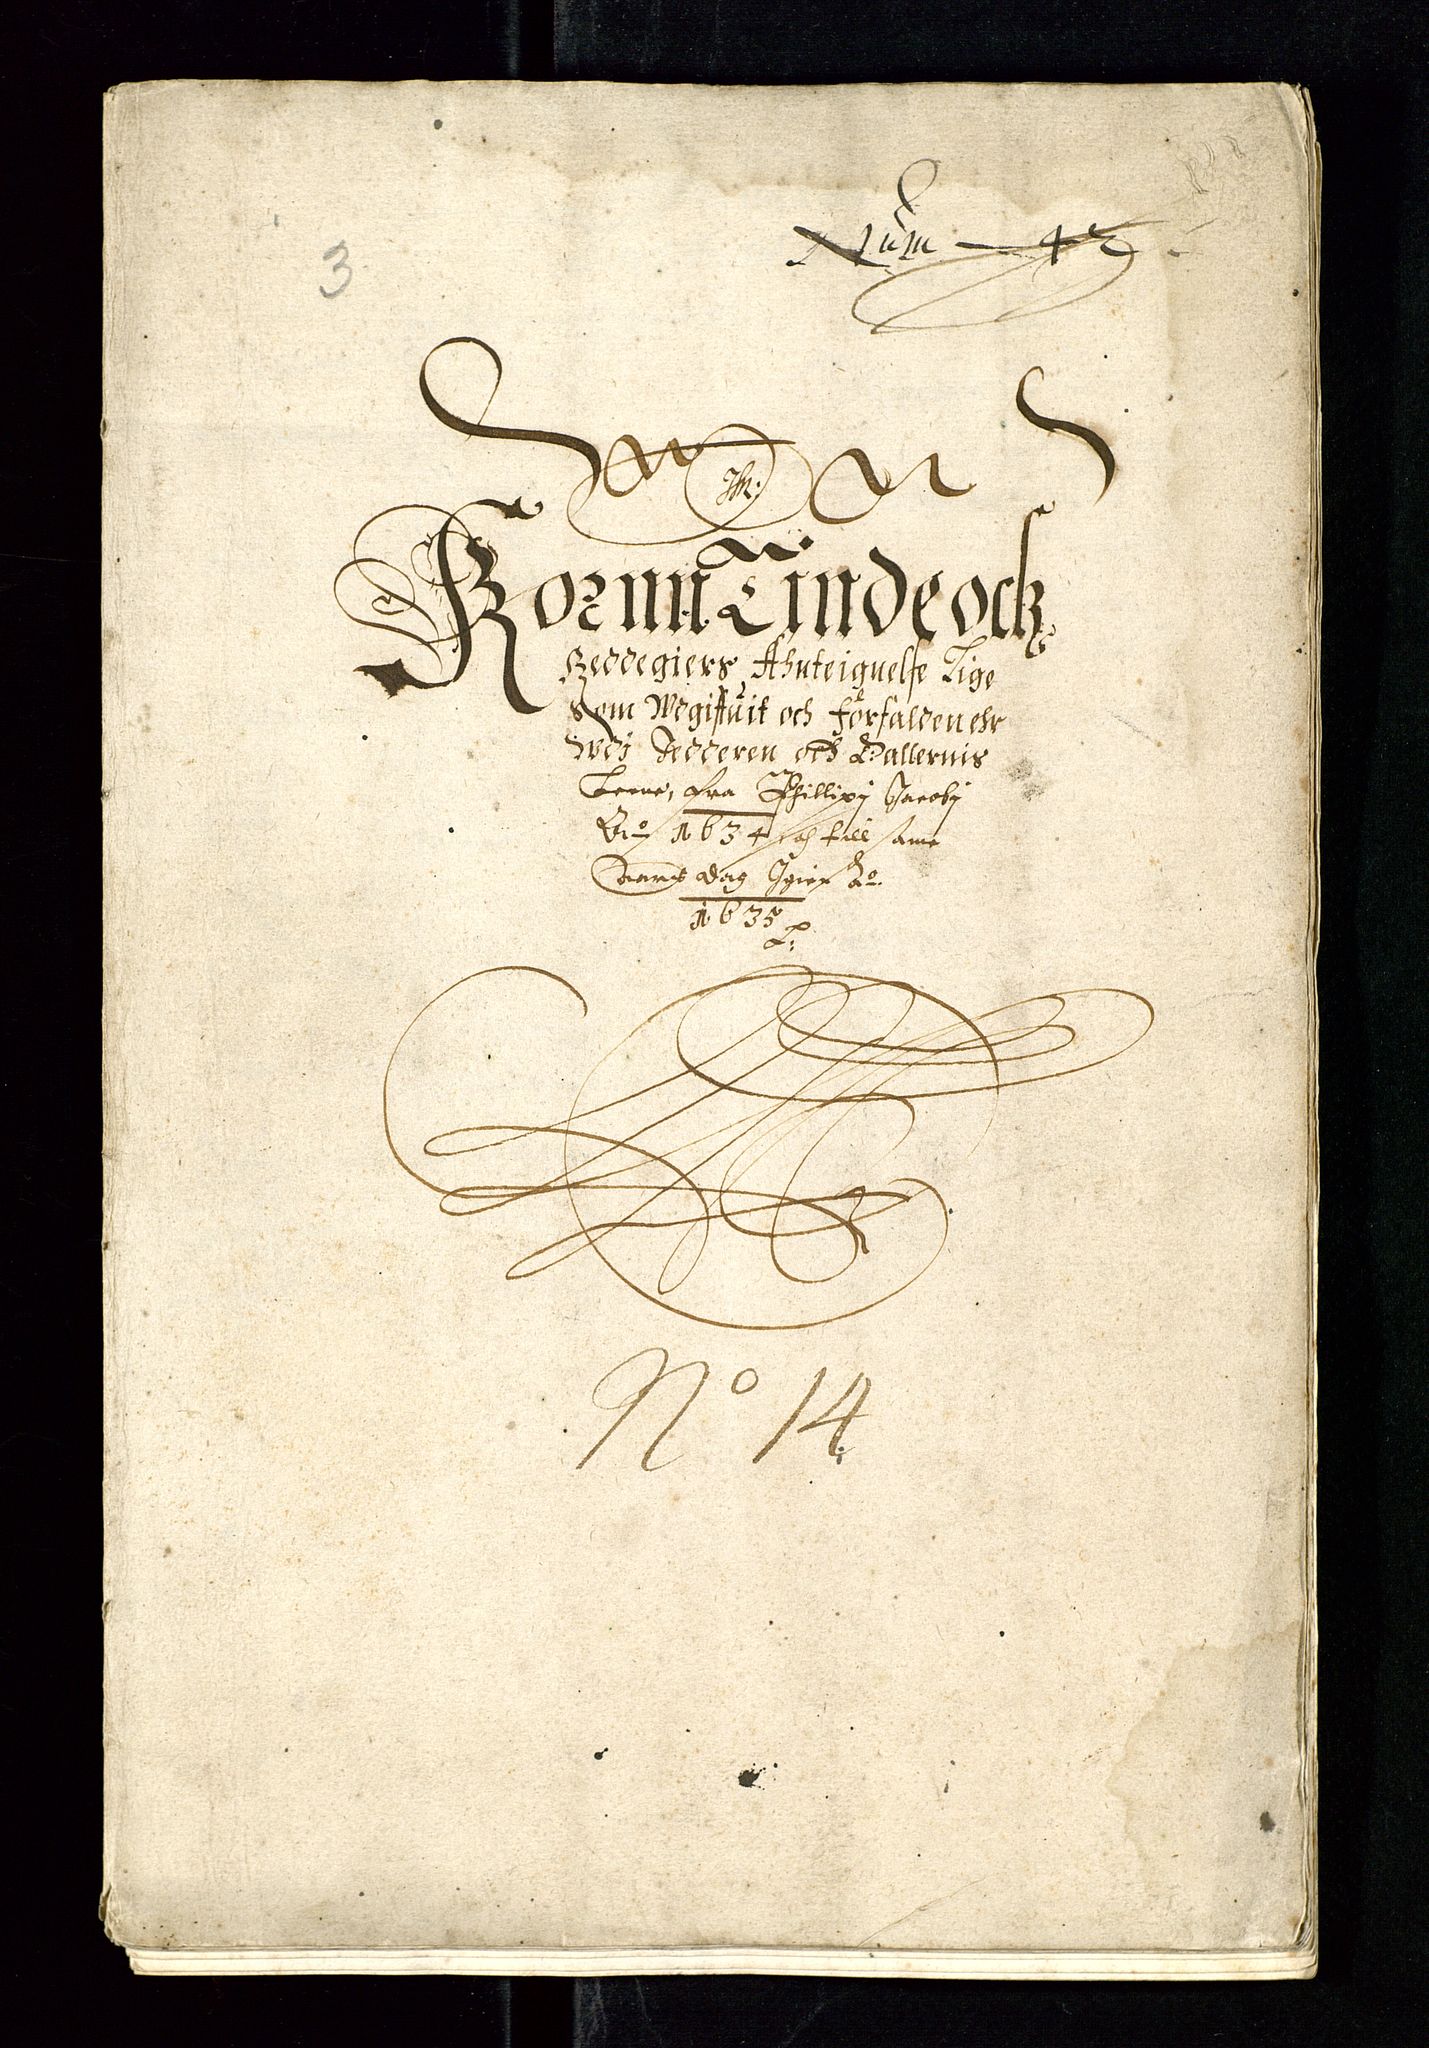 3
Num 42
Kornn Tinde och
Beddegiers Ahnteignelse Lige
som Wdgifuit och förfalden ehr
Wdj Jedderen och Dallernis
Leene, fra Phillipij Jacobj
Ao 1634 och till same
Aars dag Igien Ao
1635
No 14